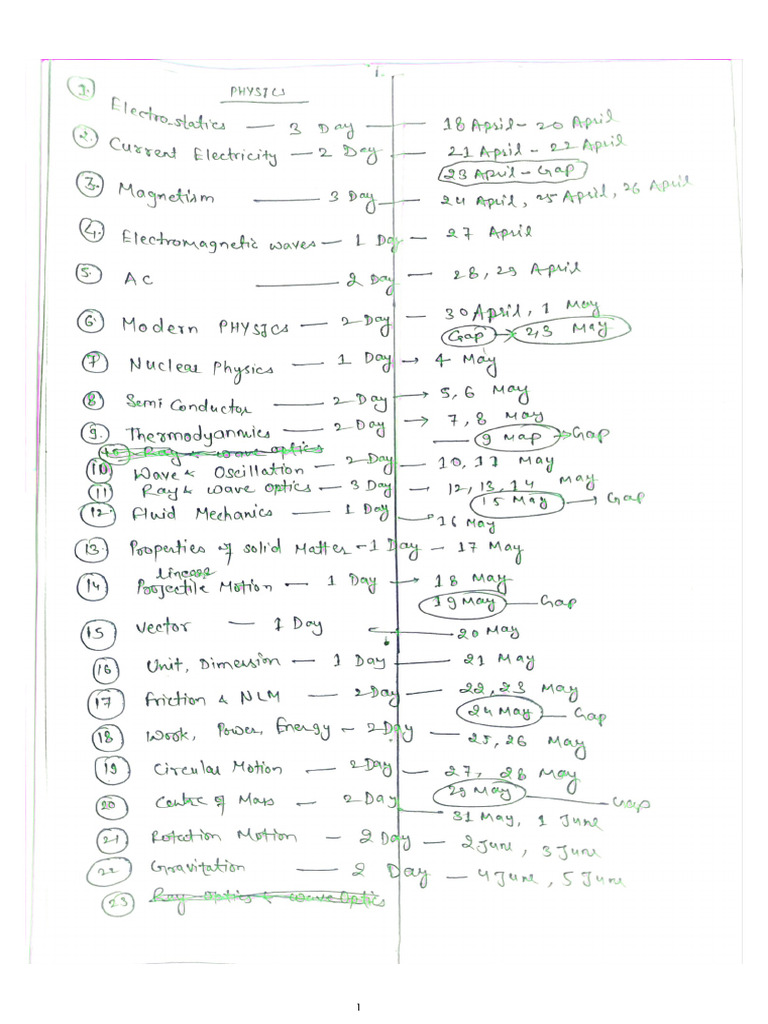 1.
PHYSICS
1. Electrostatics — 3 Day — 18 April - 20 April
2. Current Electricity — 2 Day — 21 April - 22 April
23 April - Gap
3. Magnetism — 3 Day — 24 April, 25 April, 26 April
4. Electromagnetic waves - 1 Day - 27 April
5. AC — 2 Day — 28, 29 April
6. Modern PHYSICS — 2 Day — 30 April, 1 May
Gap → 2,3 May
7 Nuclear Physics — 1 Day → 4 May
8 Semi Conductor — 2 Day → 5, 6 May
9. Thermodyanmics — 2 Day → 7, 8 May
— 9 Map → Gap
10 Ray & wave optics
10 Wave & Oscillation — 2 Day — 10, 11 May
11 Ray & wave optics — 3 Day — 12, 13, 14 May
15 May → Gap
12. Fluid Mechanics — 1 Day → 16 May
13. Properties of solid Matter - 1 Day - 17 May
linear
14 Projectile Motion — 1 Day → 18 May
19 May — Gap
15 Vector — 1 Day — 20 May
16 Unit, Dimension — 1 Day — 21 May
17 Friction & NLM — 2 Day — 22, 23 May
24 May — Gap
18 Work, Power, Energy - 2 Day — 25, 26 May
19 Circular Motion — 2 Day — 27, 28 May
29 May — Gap
20 Centre of Mass — 2 Day — 31 May, 1 June
21 Rotation Motion — 2 Day — 2 June, 3 June
22 Gravitation — 2 Day — 4 June, 5 June
23 Ray Optics & Wave Optics
1